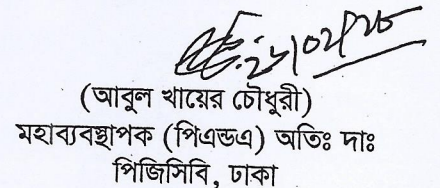 (আবুল খায়ের চৌধুরী)
মহাব্যবস্থাপক (পিএন্ডএ) অতিঃ দাঃ
পিজিসিবি, ঢাকা